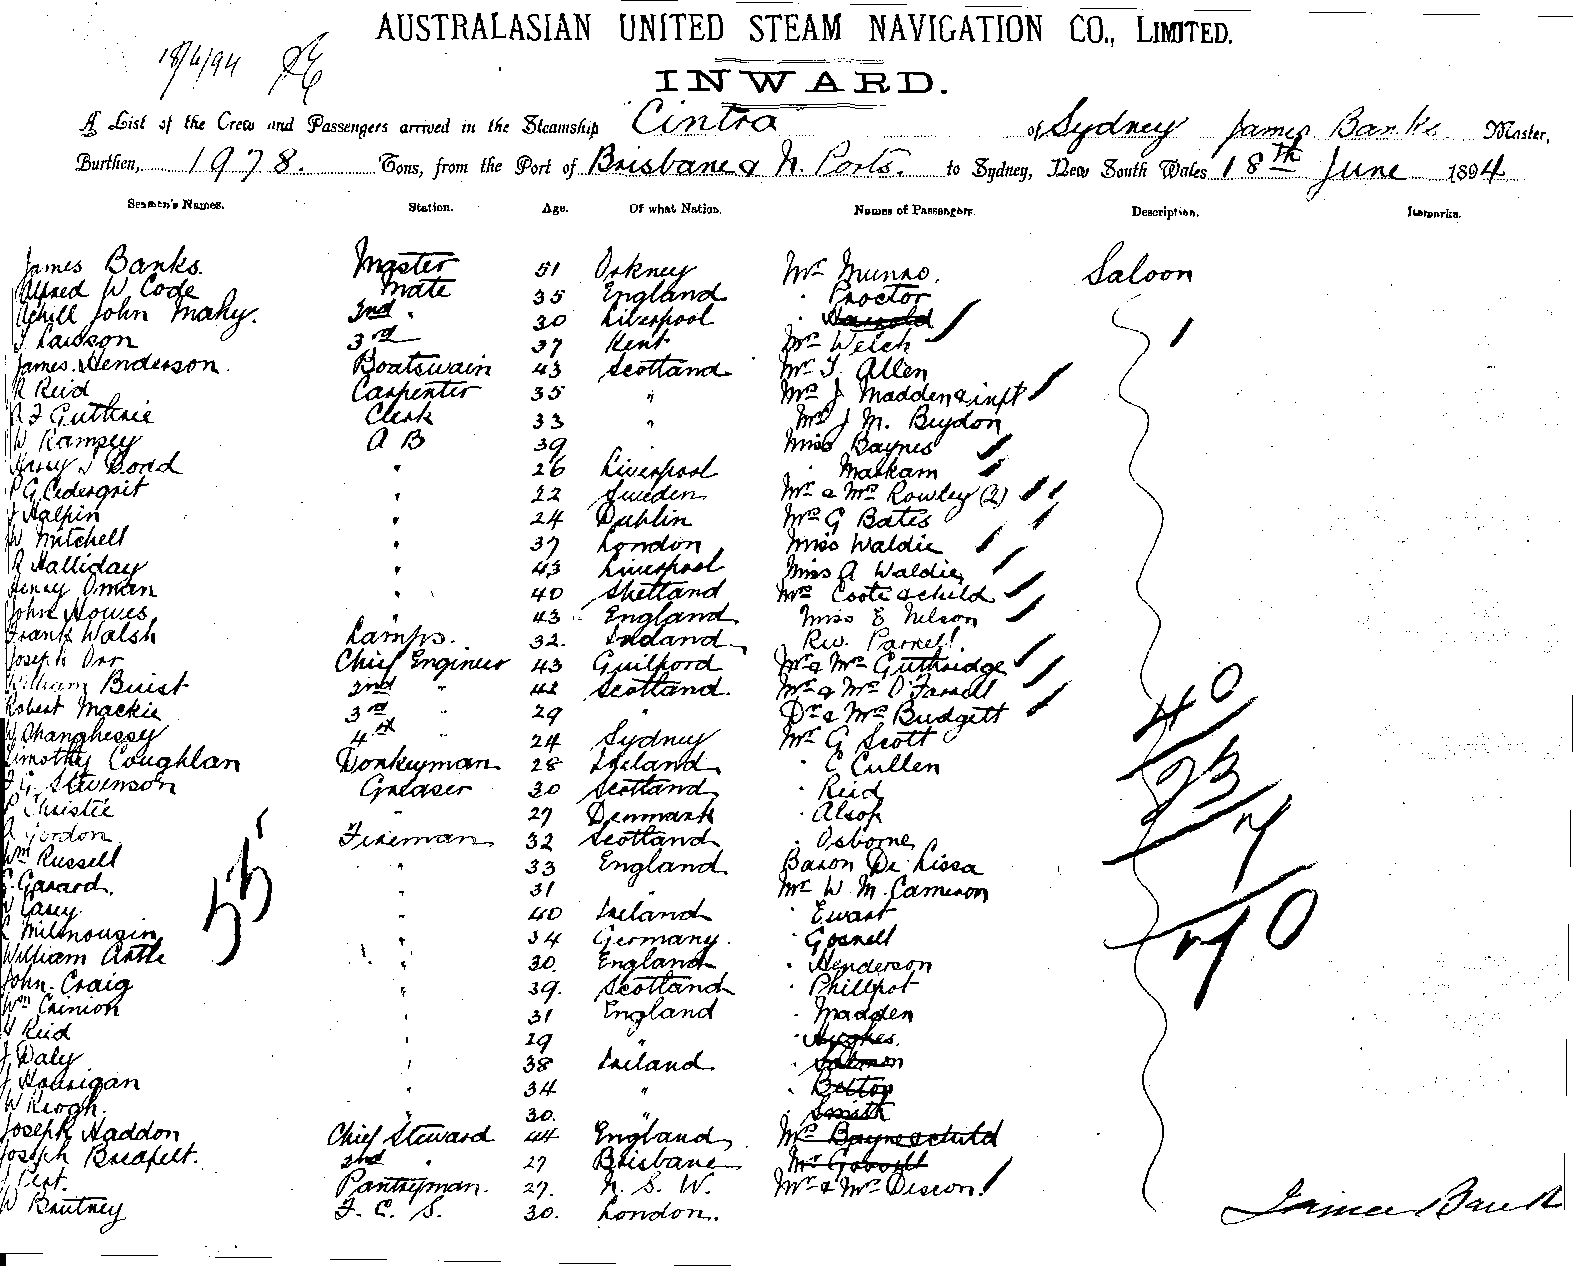 AUSTRALASIAN UNITED STEAM NAVIGATION CO., LIMITED.
18/6/94
INWARD.
A List of the Crew and Passengers arrived in the Steamship Cintra of Sydney James Banks Master,
Burthen, 1978. Tons, from the Port of Brisbane & N. Ports. to Sydney, New South Wales 18th June 1894
Seamen's Names. Station. Age. Of what Nation. Names of Passengers. Description. Remarks.
James Banks. Master 51 Orkney Mr Munro. Saloon
Alfred W Code Mate 35 England " Proctor
John Mahy. 2nd " 30 Liverpool
T Lawson 3rd 37 Kent Mrs Welch
James Henderson. Boatswain 43 Scotland Mr T. Allen
R Reid Carpenter 35 " Mrs J Madden & inft
R F Guthrie Clerk 33 " J M. Bydon
W Ramsey A B 39 Miss Baynes
Harry J Bond " 26 Liverpool " Markam
P G Cedergrit " 22 Sweden Mr & Mrs Rowley (2)
J Halpin " 24 Dublin Mrs G Bates
W Mitchell " 37 London Miss Waldie
R Halliday " 43 Liverpool Miss A Waldie
Henry Oman " 40 Shetland Mrs Coote & child
John Howes " 43 England Miss E Nelson
Frank Walsh Lamps. 32. Ireland Rev. Parnell
Joseph Orr Chief Engineer 43 Guilford Mr & Mrs Guthridge
William Buist 2nd " 42 Scotland. Mr & Mrs O'Farrell
Robert Mackie 3rd " 29 " Dr & Mrs Budgett
4th " 24 Sydney Mr G Scott
40
Timothy Coughlan Donkeyman 28 Ireland " C Cullen
J G. Stevenson Greaser 30 Scotland " Reid
23
P Christie " 27 Denmark " Alsop
A Gordon Fireman 32 Scotland " Osborne
Wm Russell " 33 England Baron De Lissa
55
C. Gerard. " 31 " Mr W. M. Cameron
W Casey " 40 Ireland " Ewart
34 Germany. " Gosnell
William Antle " 30. England " Henderson
John Craig " 39. Scotland " Phillpot
Wm Crinion " 31 England " Madden
Reid " 29 " " Hughes.
J Daly " 38 Ireland " Salmon
J Hourigan " 34 "
W Keogh. " 30. " " Smith
Joseph Haddon Chief Steward 44 England Mrs Bayne & child
Joseph 2nd " 27 Brisbane
Pantryman. 27. N. S. W. Mr & Mrs
W Brutney F. C. S. 30. London.
James Banks